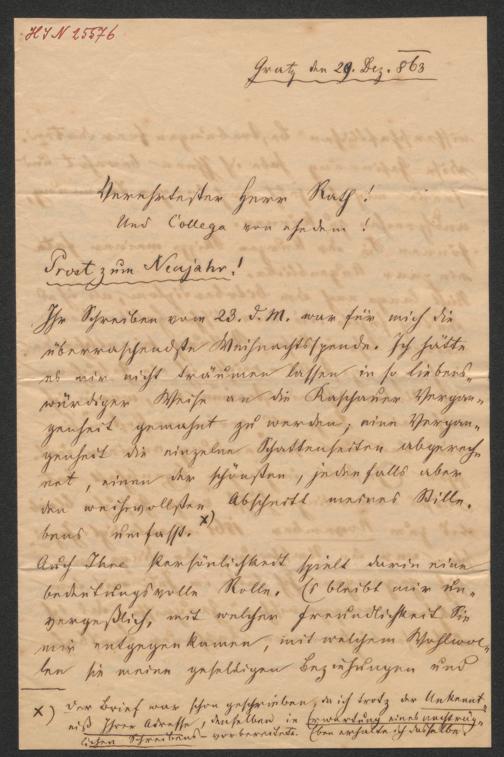 HIN 25576
Gratz den 29. Dez. 863
Verehrtester Herr Rath!
Und Collega von ehedem!
Prost zum Neujahr!
Ihr Schreiben vom 23. d. M. war für mich die
überraschendste Weihnachtsspende. Ich hätte
es mir nicht träumen lassen in so liebens-
würdiger Weise an die Kaschauer Vergan-
genheit gemahnt zu werden, eine Vergan-
genheit die einzelne Schattenseiten abgerech-
net, einen der schönsten, jedenfalls aber
den weihevollsten Abschnitt meines Stille-
bens umfasst. x)
Auch Ihre Persönlichkeit spielt darin eine
bedeutungsvolle Rolle. Es bleibt mir un-
vergeßlich, mit welcher Freundlichkeit Sie
mir entgegenkamen, mit welchem Wohlwol-
len sie meine geselligen Beziehungen und
x) Der Brief war schon geschrieben, da ich trotz der Unkennt-
niß Ihrer Adresse, denselben in Erwartung eines nachträg-
lichen Schreibens vorbereitete. Eben erhalte ich dasselbe.